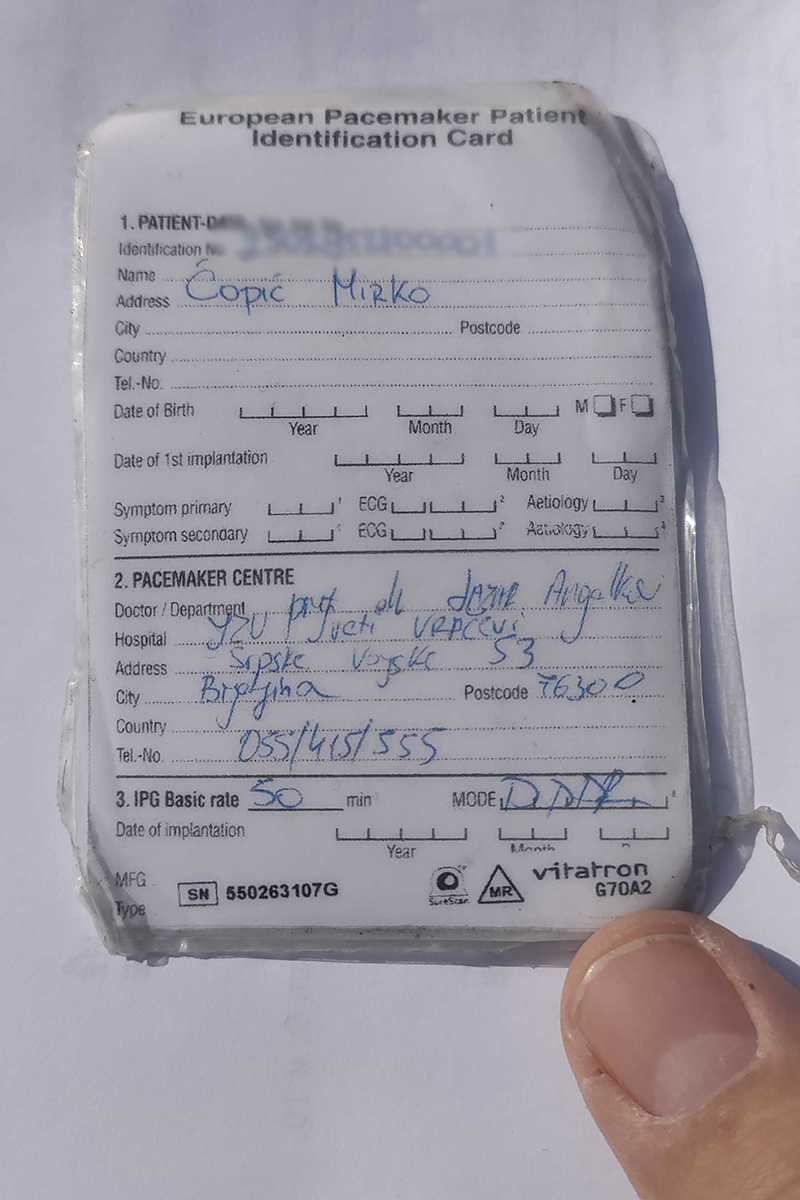 European Pacemaker Patient
Identification Card
1. PATIENT-DATA
Identification No.
Name Ćopić Mirko
Address
City Postcode
Country
Tel.-No.
Date of Birth M F
Year Month Day
Date of 1st implantation
Year Month Day
Symptom primary ECG Aetiology
Symptom secondary ECG Aetiology
2. PACEMAKER CENTRE
Doctor / Department prof dr
Hospital JZU Sveti Vračevi
Address Srpske Vojske 53
City Bijeljina Postcode 76300
Country
Tel.-No. 055/415/555
3. IPG Basic rate 50 min MODE
Date of implantation
Year Month
MFG
Type
SN 550263107G SureScan MR vitatron
G70A2